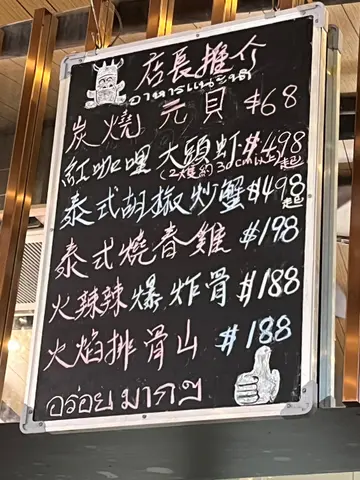 店長推介
อาหารแนะนำ
炭燒元貝 $68
紅咖哩大頭虾 $498起
(2隻約30cm以上)
泰式胡椒炒蟹 $498起
泰式燒春雞 $198
火辣辣爆炸骨 $188
火焰排骨山 $188
อร่อยมากๆ